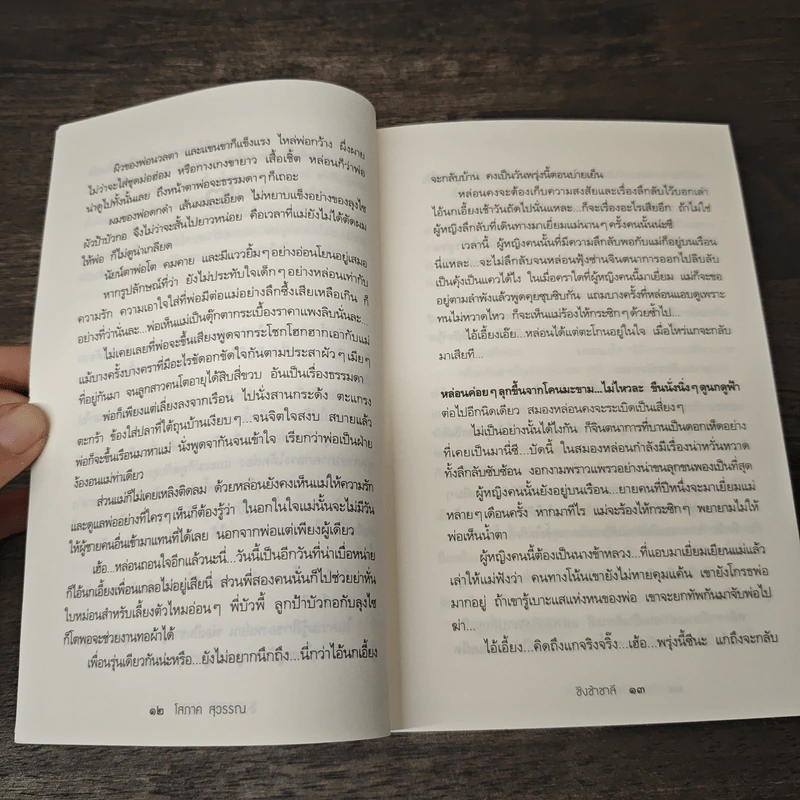 ผิวของพ่อนวลตา และแขนขาก็แข็งแรง ไหล่พ่อกว้าง ผึ่งผาย
ไม่ว่าจะใส่ชุดม่อฮ่อม หรือกางเกงขายาว เสื้อเชิ้ต หล่อนก็ว่าพ่อ
น่าดูไปทั้งนั้นเลย ถึงหน้าตาพ่อจะธรรมดาๆ ก็เถอะ
ผมของพ่อดกดำ เส้นผมละเอียด ไม่หยาบแข็งอย่างของลุงไซ
ผัวป้าบัวกอ จึงไม่ว่าจะสั้นไปยาวหน่อย คือเวลาที่แม่ยังไม่ได้ตัดผม
ให้พ่อ ก็ไม่ดูน่าเกลียด
นัยน์ตาพ่อโต คมคาย และมีแววยิ้มๆ อย่างอ่อนโยนอยู่เสมอ
หากรูปลักษณ์ที่ว่า ยังไม่ประทับใจเด็กๆ อย่างหล่อนเท่ากับ
ความรัก ความเอาใจใส่ที่พ่อมีต่อแม่อย่างลึกซึ้งเสียเหลือเกิน ก็
อย่างที่ว่านั่นละ...พ่อเห็นแม่เป็นตุ๊กตากระเบื้องราคาแพงลิบนั่นละ...
ไม่เคยเลยที่พ่อจะขึ้นเสียงพูดจากระโชกโฮกฮากเอากับแม่
แม้บางครั้งบางคราที่มีอะไรขัดอกขัดใจกันตามประสาผัวๆ เมียๆ
ที่อยู่กันมา จนลูกสาวคนโตอายุได้สิบสี่ขวบ อันเป็นเรื่องธรรมดา
พ่อก็เพียงแต่เลี่ยงลงจากเรือน ไปนั่งสานกระด้ง ตะแกรง
ตะกร้า ข้องใส่ปลาที่ใต้ถุนบ้านเงียบๆ...จนจิตใจสงบ สบายแล้ว
พ่อก็จะขึ้นเรือนมาหาแม่ นั่งพูดจากันจนเข้าใจ เรียกว่าพ่อเป็นฝ่าย
ง้องอนแม่ท่าเดียว
ส่วนแม่ก็ไม่เคยเหลิงติดลม ด้วยหล่อนยังคงเห็นแม่ให้ความรัก
และดูแลพ่ออย่างที่ใครๆ เห็นก็ต้องรู้ว่า ในอกในใจแม่นั้นจะไม่มีวัน
ให้ผู้ชายคนอื่นเข้ามาแทนที่ได้เลย นอกจากพ่อแต่เพียงผู้เดียว
เฮ้อ...หล่อนถอนใจอีกแล้วนะนี่...วันนี้เป็นอีกวันที่น่าเบื่อหน่าย
ก็ไอ้นกเอี้ยงเพื่อนเกลอไม่อยู่เสียนี่ ส่วนพี่สองคนนั่นก็ไปช่วยย่าหั่น
ใบหม่อนสำหรับเลี้ยงตัวไหมอ่อนๆ พี่บัวพี้ ลูกป้าบัวกอกับลุงไซ
ก็โตพอจะช่วยงานทอผ้าได้
เพื่อนรุ่นเดียวกันน่ะหรือ...ยังไม่อยากนึกถึง...นี่กว่าไอ้นกเอี้ยง
๑๒ โสภาค สุวรรณ
จะกลับบ้าน คงเป็นวันพรุ่งนี้ตอนบ่ายเย็น
หล่อนคงจะต้องเก็บความสงสัยและเรื่องลึกลับไว้บอกเล่า
ไอ้นกเอี้ยงเช้าวันถัดไปนั่นแหละ...ก็จะเรื่องอะไรเสียอีก ถ้าไม่ใช่
ผู้หญิงลึกลับที่เดินทางมาเยี่ยมแม่นานๆ ครั้งคนนั้นน่ะซี
เวลานี้ ผู้หญิงคนนั้นที่มีความลึกลับพอกับแม่ก็อยู่บนเรือน
นี่แหละ...จะไม่ลึกลับจนหล่อนฟุ้งซ่านจินตนาการออกไปลิบลับ
เป็นคุ้งเป็นแควได้ไง ในเมื่อคราใดที่ผู้หญิงคนนี้มาเยี่ยม แม่ก็จะขอ
อยู่ตามลำพังแล้วพูดคุยซุบซิบกัน แถมบางครั้งที่หล่อนแอบดูเพราะ
ทนไม่ไหวไหว ก็จะเห็นแม่ร้องไห้กระซิกๆ ด้วยซ้ำไป...
ไอ้เอี้ยงเอ๊ย...หล่อนได้แต่ตะโกนอยู่ในใจ เมื่อไหร่แกจะกลับ
มาเสียที...
หล่อนค่อยๆ ลุกขึ้นจากโคนมะขาม...ไม่ไหวละ ขืนนั่งนิ่งๆ ดูนกดูฟ้า
ต่อไปอีกนิดเดียว สมองหล่อนคงจะระเบิดเป็นเสี่ยงๆ
ไม่เป็นอย่างนั้นได้ไงกัน ก็จินตนาการที่บานเป็นดอกเห็ดอย่าง
ที่เคยเป็นมานี่ซี...บัดนี้ ในสมองหล่อนกำลังมีเรื่องน่าหวั่นหวาด
ทั้งลึกลับซับซ้อน งอกงามพราวแพรวอย่างน่าขนลุกขนพองเป็นที่สุด
ผู้หญิงคนนั้นยังอยู่บนเรือน...ยายคนที่ปีหนึ่งจะมาเยี่ยมแม่
หลายๆ เดือนครั้ง หากมาทีไร แม่จะร้องไห้กระซิกๆ พยายามไม่ให้
พ่อเห็นน้ำตา
ผู้หญิงคนนี้ต้องเป็นนางข้าหลวง...ที่แอบมาเยี่ยมเยียนแม่แล้ว
เล่าให้แม่ฟังว่า คนทางโน้นเขายังไม่หายคุมแค้น เขายังโกรธพ่อ
มากอยู่ ถ้าเขารู้เบาะแสแห่งหนของพ่อ เขาจะยกทัพกันมาจับพ่อไป
ฆ่า...
ไอ้เอี้ยง...คิดถึงแกจริงจริ๊ง...เฮ้อ...พรุ่งนี้ซีนะ แกถึงจะกลับ
ชิงช้าชาลี ๑๓